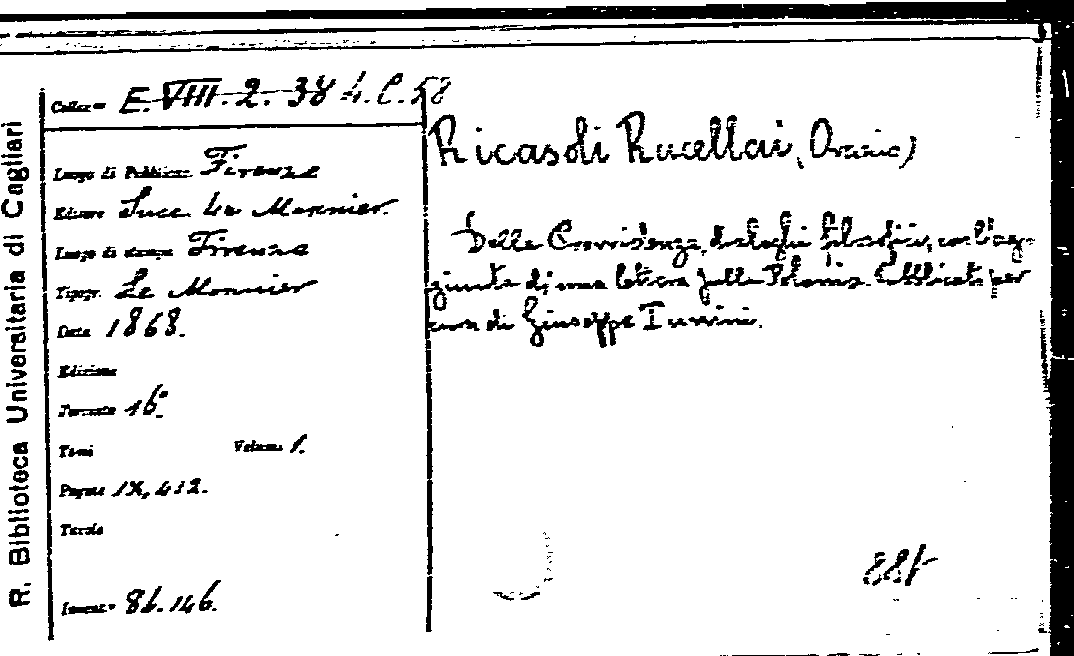 R. Biblioteca Universitaria di Cagliari
Colloc.ne E. VIII. 2. 38 4. C. 58
Luogo di Pubblicaz. Firenze
Editore Succ. Le Monnier.
Luogo di stampa Firenze
Tipogr. Le Monnier
Data 1868.
Edizione
Formato 16°
Tomi Volume 1.
Pagine IX, 412.
Tavole
Invent.
Ricasoli Rucellai, Orazio)
Della Provvidenza, dialoghi filosofici, coll'ag-
giunta di una lettera sulla Pubblicati per
cura di Giuseppe Turrini.